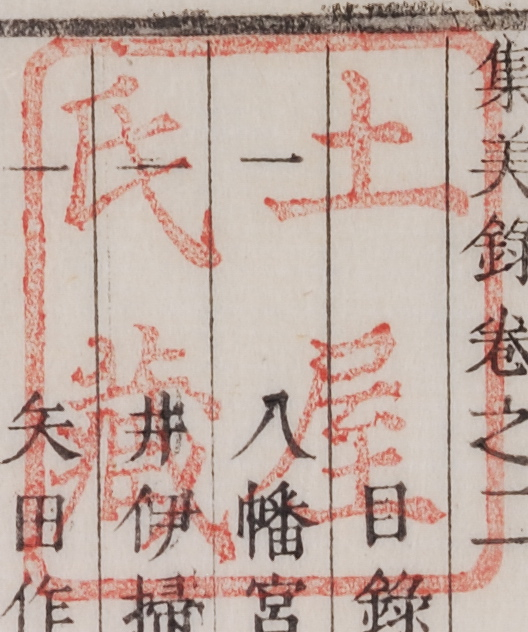 集美錄卷之二
目錄
一 八幡宮
一 井伊掃
一 矢田作
土屋
氏藏